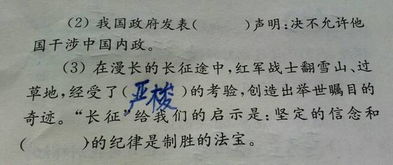 (2)我国政府发表(　　)声明:决不允许他
国干涉中国内政。
(3)在漫长的长征途中,红军战士翻雪山、过
草地,经受了(严梭)的考验,创造出举世瞩目的
奇迹。“长征”给我们的启示是:坚定的信念和
(　　)的纪律是制胜的法宝。